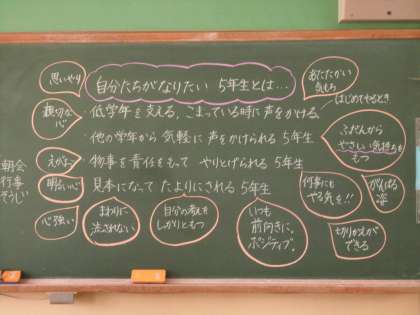 自分たちがなりたい 5年生とは…
思いやり
あたたかい
気もち
親切な
心
・低学年を支える,こまっている時に声をかける。
はじめてやるとき
・他の学年から 気軽に 声をかけられる 5年生
ふだんから
やさしい気持ちを
もつ
えがお
・物事を責任をもって やりとげられる 5年生
朝会
行事
そうじ
明るい心
・見本になって たよりにされる 5年生
何事にも
やる気を!!
がんばる
姿
心強い
まわりに
流されない
自分の考えを
しっかりともつ
いつも
前向きに。
ポジティブ。
切りかえが
できる